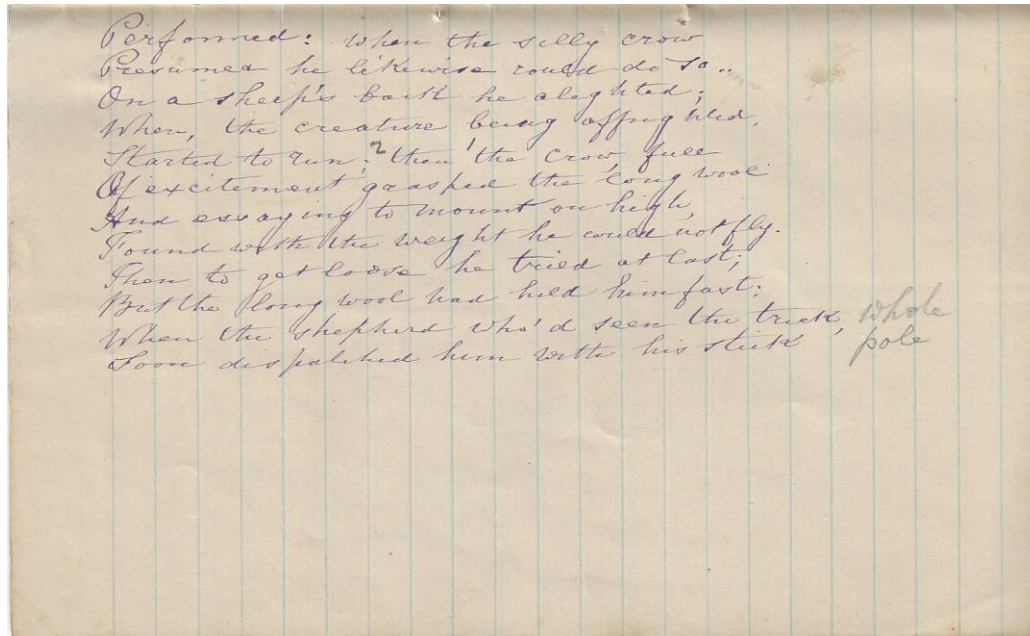 Performed: when the silly crow
Presumed he likewise could do so..
On a sheep's back he alighted;
When, the creature being affrighted,
Started to run; 2 then 1 the crow, full
Of excitement grasped the long wool
And essaying to mount on high,
Found with the weight he could not fly.
Then to get loose he tried at last;
But the long wool had held him fast:
When the shepherd who'd seen the trick, whole
Soon dispatched him with his stick pole